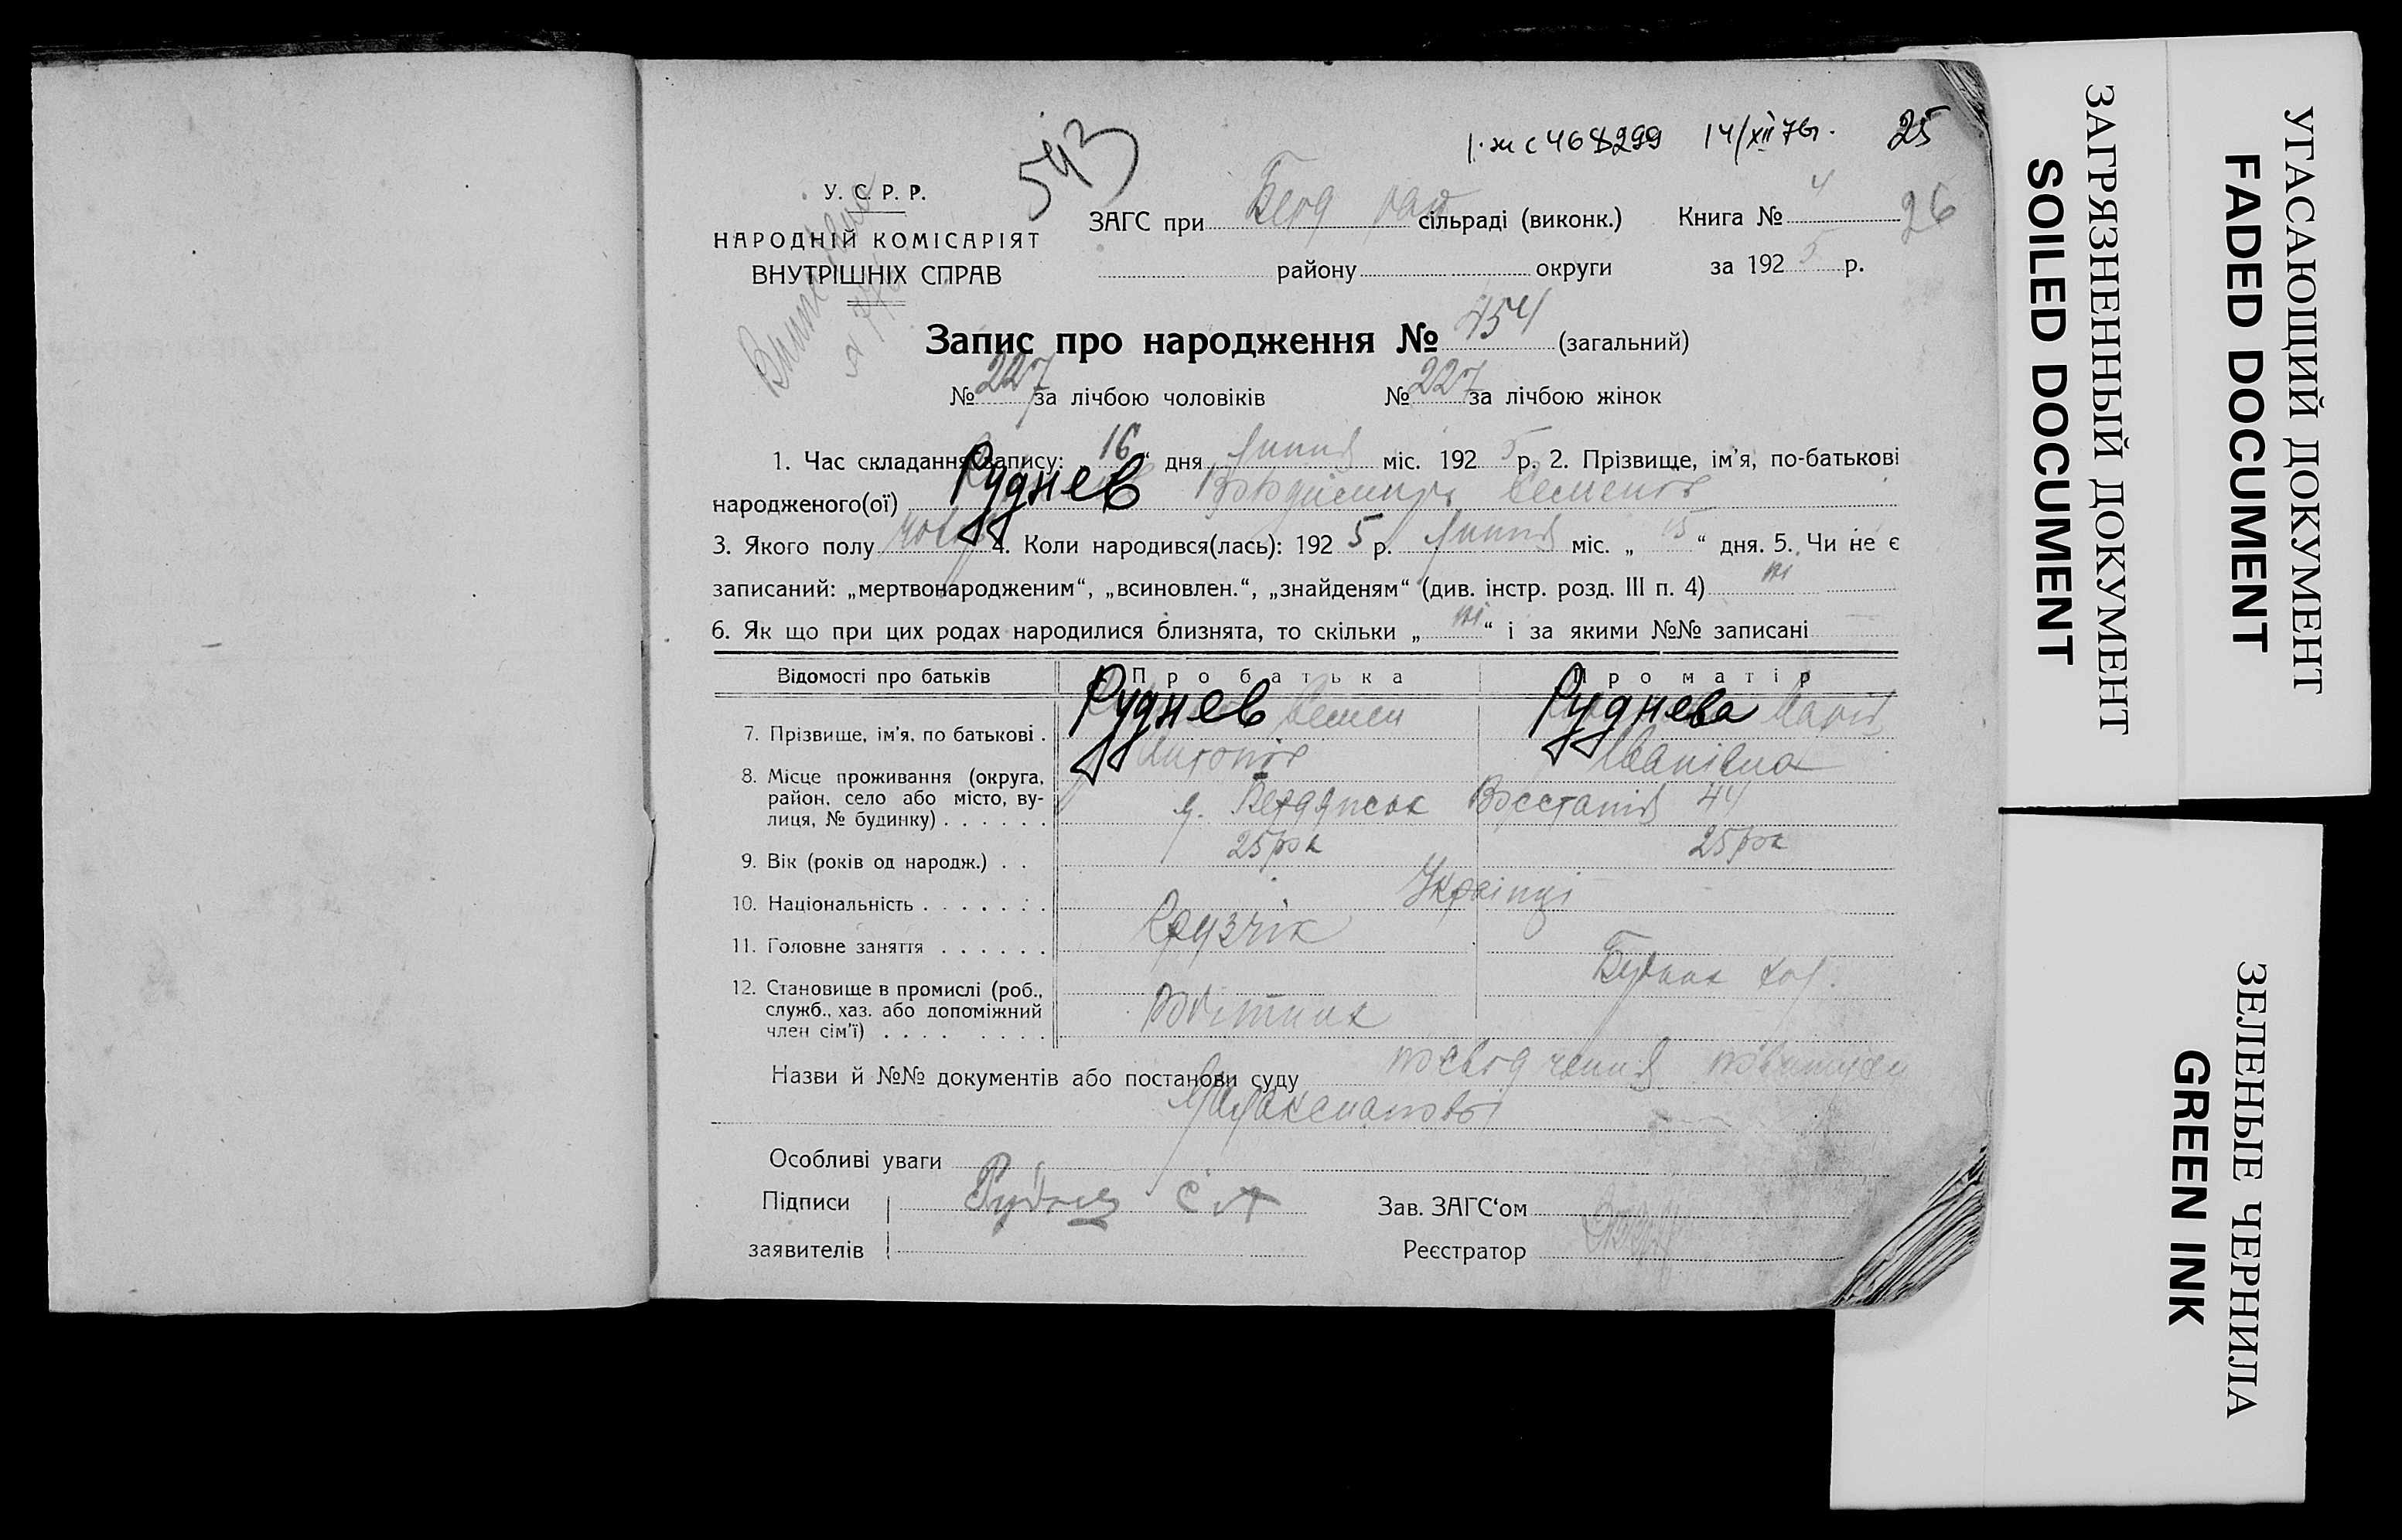 543
I-жс 468299 14/XII 76г. 25
У. С. Р. Р.
НАРОДНІЙ КОМІСАРІЯТ
ВНУТРІШНІХ СПРАВ
ЗАГС при Берд рай сільраді (виконк.) Книга № 4 26
району округи за 1925 р.
Запис про народження № 454 (загальний)
№ 227 за лічбою чоловіків № 227 за лічбою жінок
1. Час складання запису: 16 “ дня липня міс. 1925 р. 2. Прізвище, ім’я, по-батькові
народженого(ої) Руднев Володимир Семенов
3. Якого полу чолов 4. Коли народився(лась): 1925 р. липня міс. „ 15 “ дня. 5. Чи не є
записаний: „мертвонародженим“, „всиновлен.“, „знайденям“ (див. інстр. розд. III п. 4) ні
6. Як що при цих родах народилися близнята, то скільки „ ні “ і за якими №№ записані
Відомості про батьків Про батька Про матір
7. Прізвище, ім’я, по батькові . Руднев Семен Руднева Марія
Антонов Іванівна
8. Місце проживання (округа,
район, село або місто, ву-
лиця, № будинку) . . . . . . Бердянськ Восстанія 44
9. Вік (років од народж.) . . 25 рок 25 рок
10. Національність . . . . . . . Українці
11. Головне заняття . . . . . . Грузчік
12. Становище в промислі (роб.,
служб., хаз. або допоміжний
член сім’ї) . . . . . . . . Робітник
Назви й №№ документів або постанови суду посвідчення
Особливі уваги
Підписи Руднев С А Зав. ЗАГС‘ом
заявителів Реєстратор
ЗАГРЯЗНЕННЫЙ ДОКУМЕНТ
SOILED DOCUMENT
УГАСАЮЩИЙ ДОКУМЕНТ
FADED DOCUMENT
ЗЕЛЕНЫЕ ЧЕРНИЛА
GREEN INK